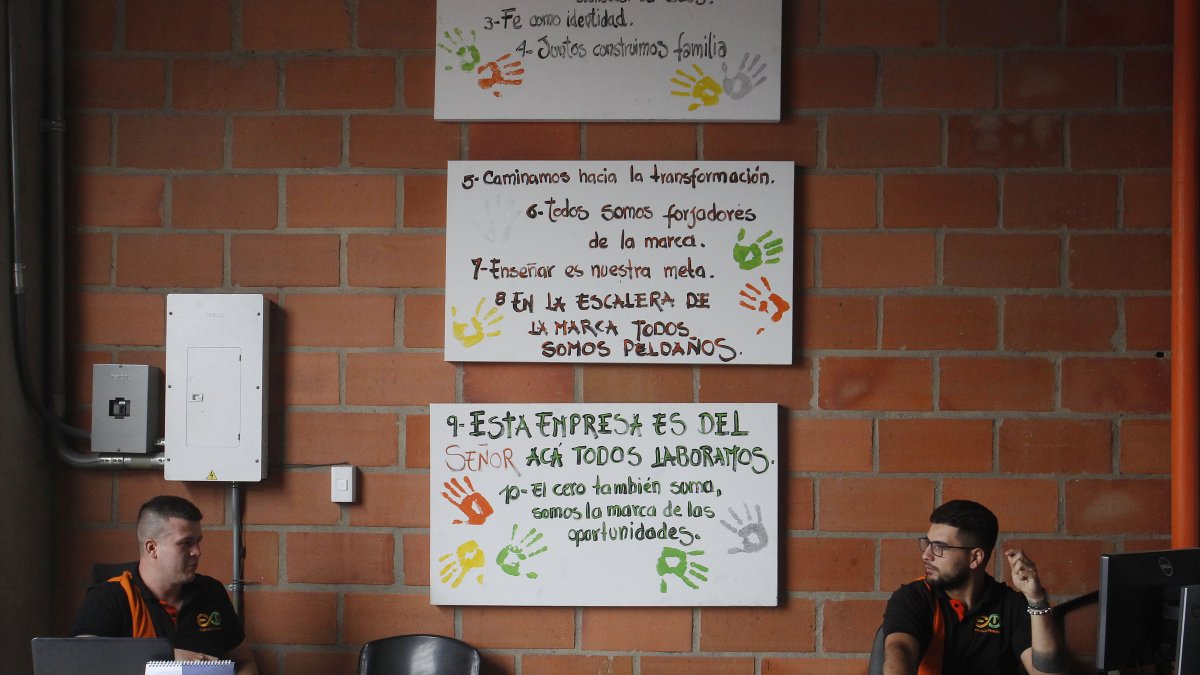 3- Fe como identidad.
4- Juntos construimos familia
5- Caminamos hacia la transformación.
6- Todos somos forjadores
de la marca.
7- Enseñar es nuestra meta.
8 EN LA ESCALERA DE
LA MARCA TODOS
SOMOS PELDAÑOS.
9- ESTA EMPRESA ES DEL
SEÑOR ACÁ TODOS LABORAMOS.
10- El cero también suma,
somos la marca de las
oportunidades.
DELL